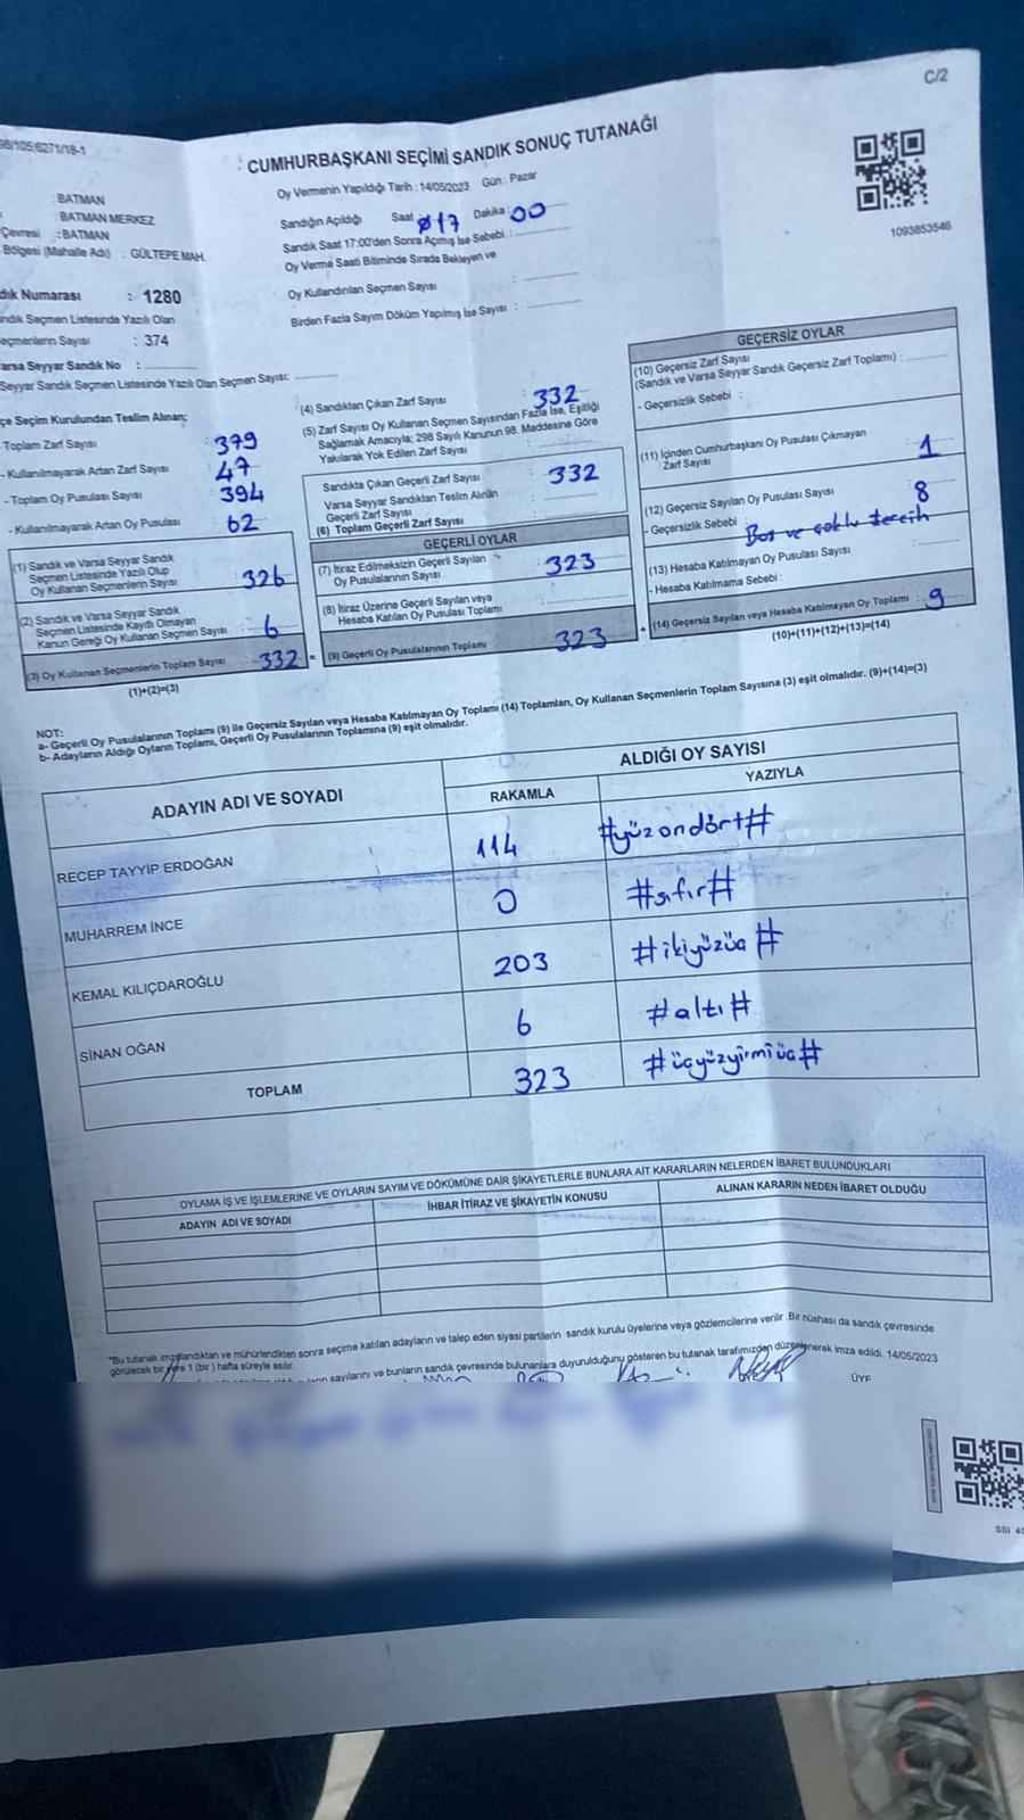 C/2
CUMHURBAŞKANI SEÇİMİ SANDIK SONUÇ TUTANAĞI
Oy Vermenin Yapıldığı Tarih : 14/05/2023 Gün : Pazar
BATMAN
BATMAN MERKEZ
Çevresi : BATMAN
Bölgesi (Mahalle Adı) : GÜLTEPE MAH.
1093853546
Sandığın Açıldığı Saat 017 Dakika : 00
Sandık Saat 17:00'den Sonra Açmış İse Sebebi :
Oy Verme Saati Bitiminde Sırada Bekleyen ve
Oy Kullandırılan Seçmen Sayısı :
Birden Fazla Sayım Döküm Yapılmış İse Sayısı :
dık Numarası : 1280
ndık Seçmen Listesinde Yazılı Olan
eçmenlerin Sayısı : 374
arsa Seyyar Sandık No :
Seyyar Sandık Seçmen Listesinde Yazılı Olan Seçmen Sayısı:
çe Seçim Kurulundan Teslim Alınan;
Toplam Zarf Sayısı : 379
- Kullanılmayarak Artan Zarf Sayısı : 47
- Toplam Oy Pusulası Sayısı : 394
- Kullanılmayarak Artan Oy Pusulası : 62
(1) Sandık ve Varsa Seyyar Sandık
Seçmen Listesinde Yazılı Olup
Oy Kullanan Seçmenlerin Sayısı : 326
(2) Sandık ve Varsa Seyyar Sandık
Seçmen Listesinde Kaydı Olmayan
Kanun Gereği Oy Kullanan Seçmen Sayısı : 6
(3) Oy Kullanan Seçmenlerin Toplam Sayısı : 332
(1)+(2)=(3)
(4) Sandıktan Çıkan Zarf Sayısı : 332
(5) Zarf Sayısı Oy Kullanan Seçmen Sayısından Fazla İse, Eşitliği
Sağlamak Amacıyla; 298 Sayılı Kanunun 98. Maddesine Göre
Yakılarak Yok Edilen Zarf Sayısı :
Sandıkta Çıkan Geçerli Zarf Sayısı : 332
Varsa Seyyar Sandıktan Teslim Alınan
Geçerli Zarf Sayısı :
(6) Toplam Geçerli Zarf Sayısı :
GEÇERLİ OYLAR
(7) İtiraz Edilmeksizin Geçerli Sayılan
Oy Pusulalarının Sayısı : 323
(8) İtiraz Üzerine Geçerli Sayılan veya
Hesaba Katılan Oy Pusulası Toplamı :
(9) Geçerli Oy Pusulalarının Toplamı : 323
GEÇERSİZ OYLAR
(10) Geçersiz Zarf Sayısı
(Sandık ve Varsa Seyyar Sandık Geçersiz Zarf Toplamı) :
- Geçersizlik Sebebi :
(11) İçinden Cumhurbaşkanı Oy Pusulası Çıkmayan
Zarf Sayısı : 1
(12) Geçersiz Sayılan Oy Pusulası Sayısı : 8
- Geçersizlik Sebebi : Boş ve çoklu tercih
(13) Hesaba Katılmayan Oy Pusulası Sayısı :
- Hesaba Katılmama Sebebi :
(14) Geçersiz Sayılan veya Hesaba Katılmayan Oy Toplamı : 9
(10)+(11)+(12)+(13)=(14)
NOT:
a- Geçerli Oy Pusulalarının Toplamı (9) ile Geçersiz Sayılan veya Hesaba Katılmayan Oy Toplamı (14) Toplamları, Oy Kullanan Seçmenlerin Toplam Sayısına (3) eşit olmalıdır. (9)+(14)=(3)
b- Adayların Aldığı Oyların Toplamı, Geçerli Oy Pusulalarının Toplamına (9) eşit olmalıdır.
ADAYIN ADI VE SOYADI
ALDIĞI OY SAYISI
RAKAMLA YAZIYLA
RECEP TAYYİP ERDOĞAN 114 #yüzondört#
MUHARREM İNCE 0 #sıfır#
KEMAL KILIÇDAROĞLU 203 #ikiyüzüç#
SİNAN OĞAN 6 #altı#
TOPLAM 323 #üçyüzyirmiüç#
OYLAMA İŞ VE İŞLEMLERİNE VE OYLARIN SAYIM VE DÖKÜMÜNE DAİR ŞİKAYETLERLE BUNLARA AİT KARARLARIN NELERDEN İBARET BULUNDUKLARI
ADAYIN ADI VE SOYADI İHBAR İTİRAZ VE ŞİKAYETİN KONUSU ALINAN KARARIN NEDEN İBARET OLDUĞU
*Bu tutanak imzalandıktan ve mühürlendikten sonra seçime katılan adayların ve talep eden siyasi partilerin sandık kurulu üyelerine veya gözlemcilerine verilir. Bir nüshası da sandık çevresinde
görülecek bir yere 1 (bir) hafta süreyle asılır.
sayılarını ve bunların sandık çevresinde bulunanlara duyurulduğunu gösteren bu tutanak tarafımızdan düzenlenerek imza edildi. 14/05/2023
ÜYE